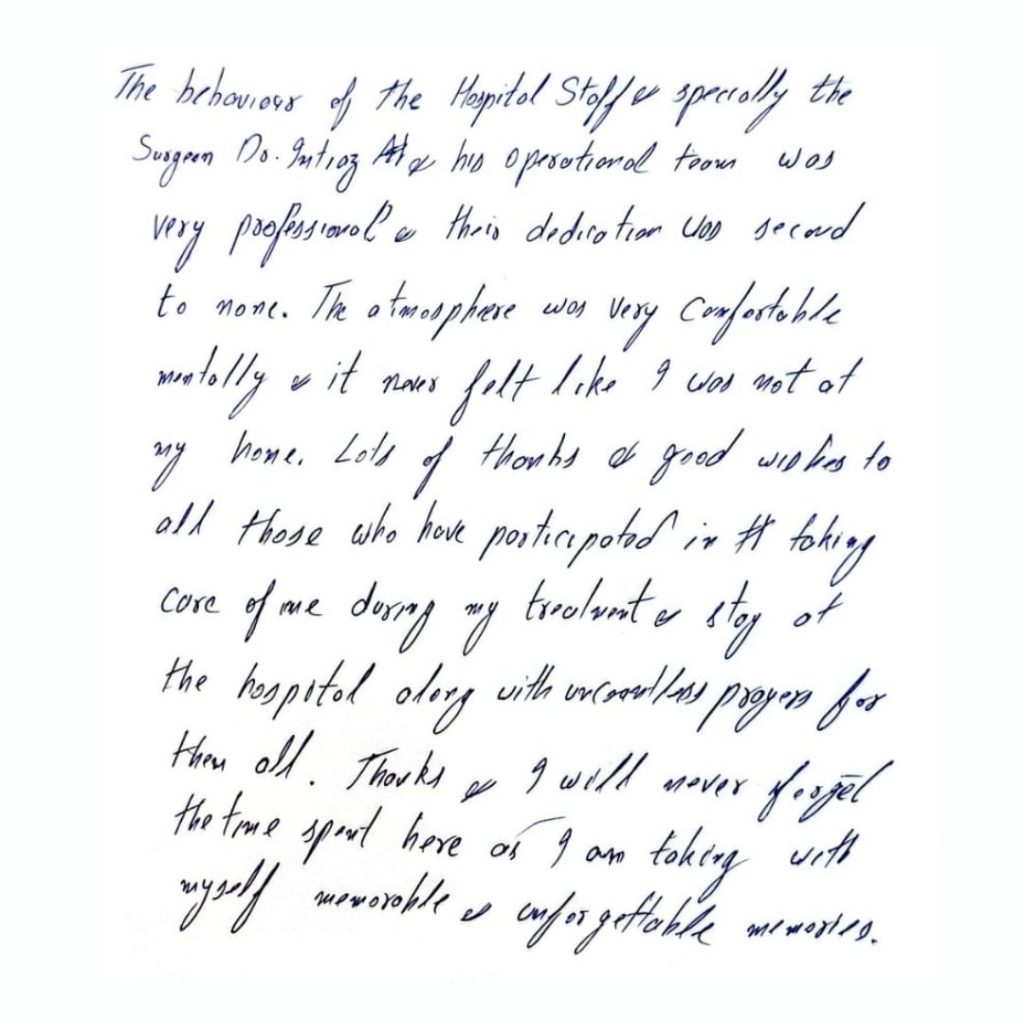 The behaviour of the Hospital Staff & specially the
Surgeon Dr. Imtiaz & his operational team was
very professional & their dedication was second
to none. The atmosphere was very comfortable
mentally & it never felt like I was not at
my home. Lots of thanks & good wishes to
all those who have participated in taking
care of me during my treatment & stay at
the hospital along with uncountless prayers for
them all. Thanks & I will never forget
the time spent here as I am taking with
myself memorable & unforgettable memories.